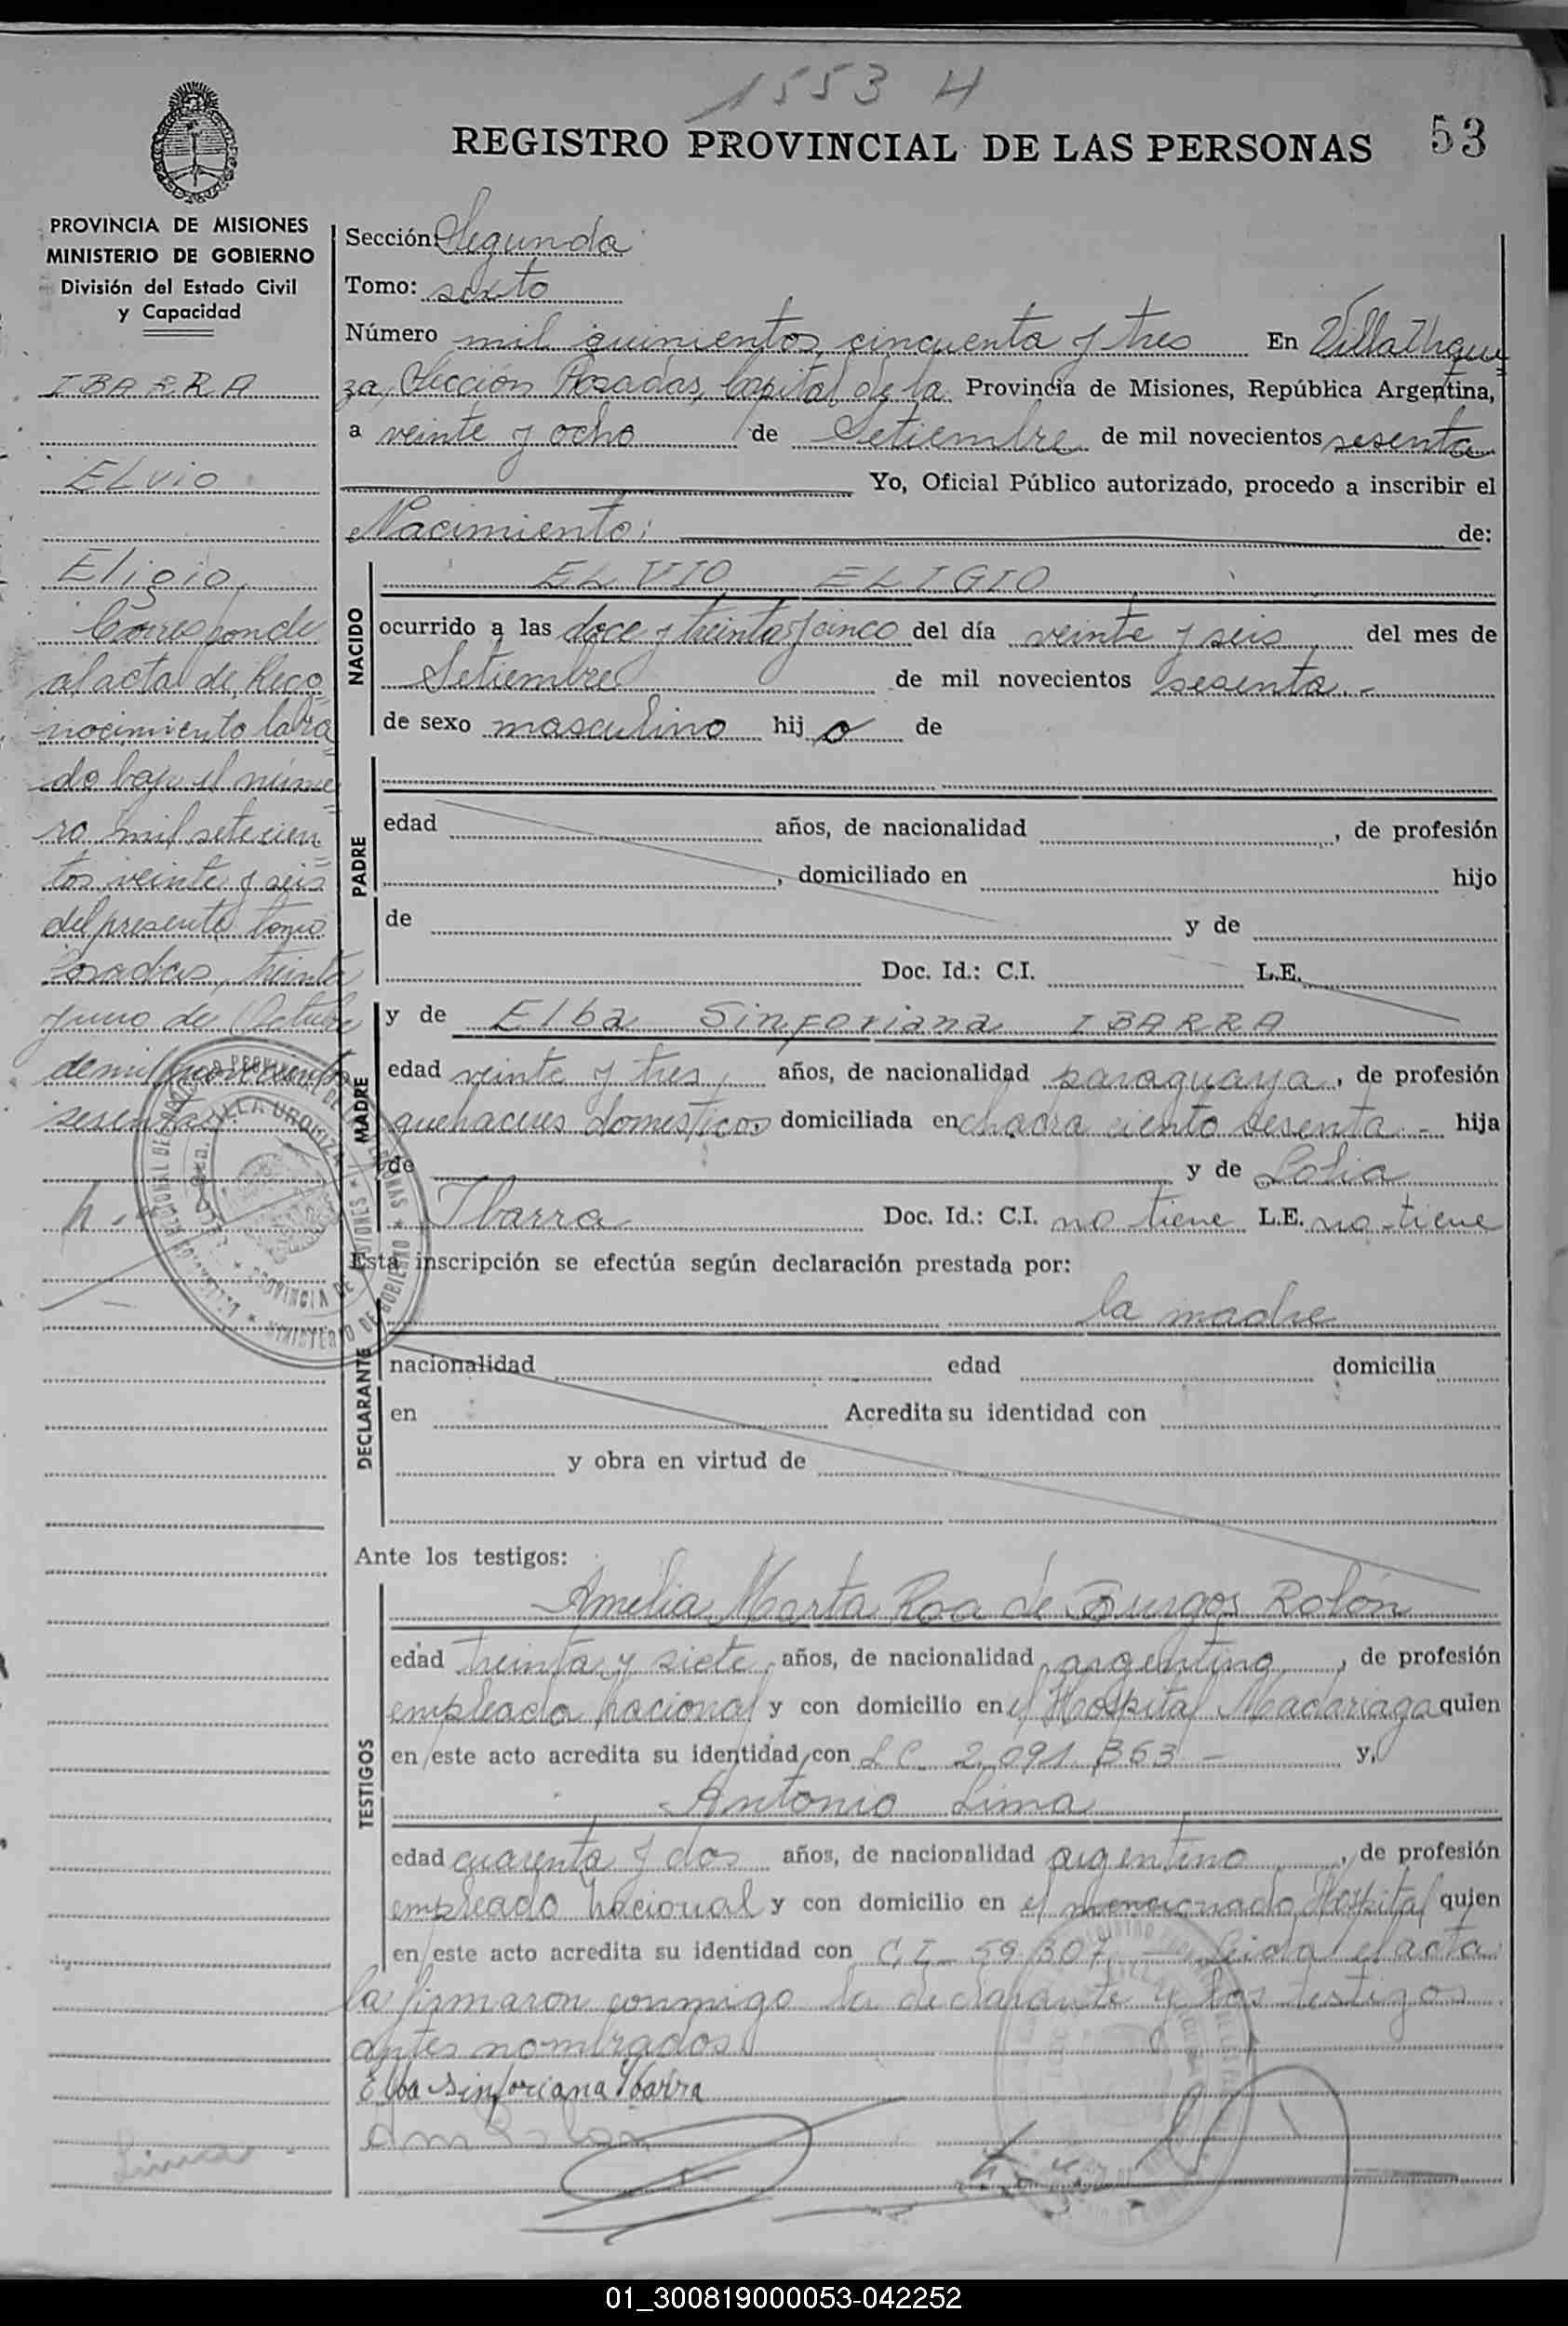 1553 H
REGISTRO PROVINCIAL DE LAS PERSONAS 53
PROVINCIA DE MISIONES
MINISTERIO DE GOBIERNO
División del Estado Civil
y Capacidad
IBARRA
ELVIO
Eligio
Corresponde
al acta de Reco
nocimiento labra
do bajo el núme
ro mil setecien
tos veinte y seis
del presente tomo
Posadas, treinta
y uno de Octubre
de mil novecientos
sesenta
Sección: Segunda
Tomo: sexto
Número mil quinientos cincuenta y tres En Villa Urqui
za, Sección Posadas, Capital de la Provincia de Misiones, República Argentina,
a veinte y ocho de Setiembre de mil novecientos sesenta
Yo, Oficial Público autorizado, procedo a inscribir el
Nacimiento: de:
NACIDO
ELVIO ELIGIO
ocurrido a las doce y treinta y cinco del día veinte y seis del mes de
Setiembre de mil novecientos sesenta.-
de sexo masculino hijo de
PADRE
edad años, de nacionalidad , de profesión
, domiciliado en hijo
de y de
Doc. Id.: C.I. L.E.
MADRE
y de Elba Sinforiana IBARRA
edad veinte y tres años, de nacionalidad paraguaya, de profesión
quehaceres domesticos domiciliada en chacra ciento sesenta.- hija
de y de
Ibarra Doc. Id.: C.I. no tiene L.E. no tiene
Esta inscripción se efectúa según declaración prestada por:
DECLARANTE
la madre
nacionalidad edad domicilia
en Acredita su identidad con
y obra en virtud de
Ante los testigos:
TESTIGOS
Amelia Marta Roa de Burgos Rolón
edad treinta y siete años, de nacionalidad argentina, de profesión
empleada nacional y con domicilio en el Hospital Madariaga quien
en este acto acredita su identidad con L C. 2.091.363 - y,
Antonio Lima
edad cuarenta y dos años, de nacionalidad argentino, de profesión
empleado nacional y con domicilio en el mencionado Hospital quien
en este acto acredita su identidad con C.I. 59.307.- Leida el acta
la firmaron conmigo la declarante y los testigos
antes nombrados.
Elba Sinforiana Ibarra
01_300819000053-042252